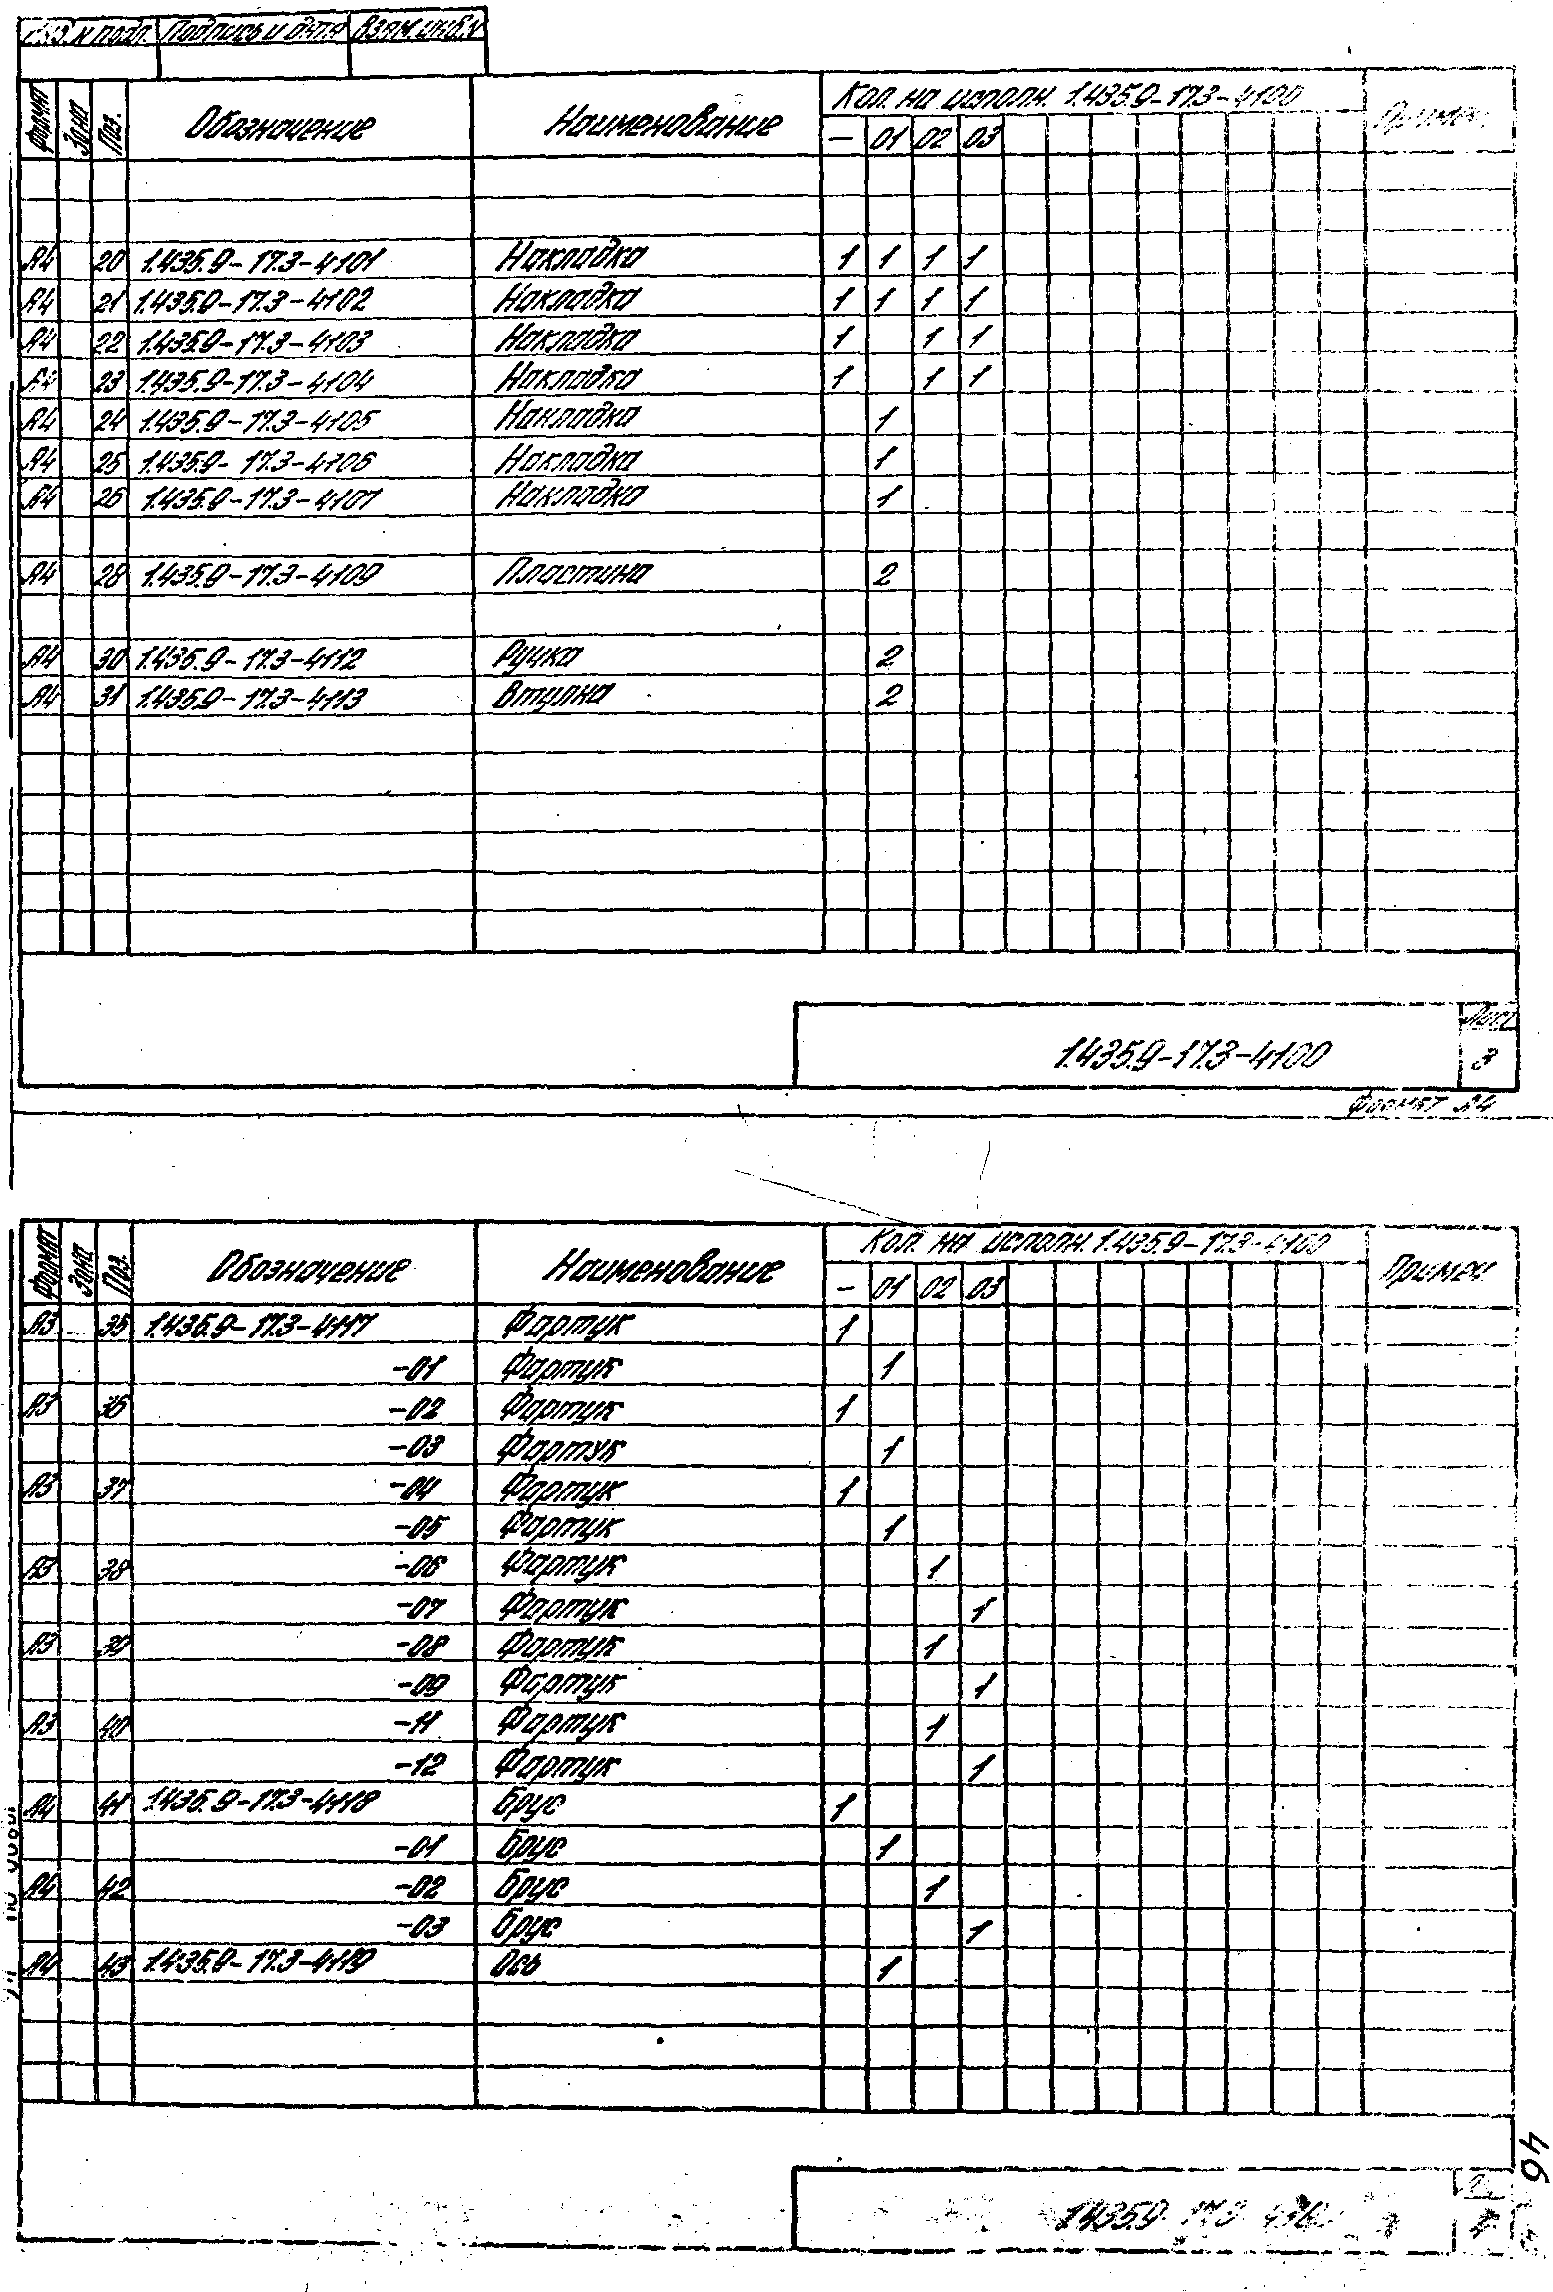 Инв. N подл. Подпись и дата Взам. инв. N
Формат Зона Поз. Обозначение Наименование Кол. на исполн. 1.435.9-17.3-4100 Примеч.
— 01 02 03
А4 20 1.435.9-17.3-4101 Накладка 1 1 1 1
А4 21 1.435.9-17.3-4102 Накладка 1 1 1 1
А4 22 1.435.9-17.3-4103 Накладка 1 1 1
А4 23 1.435.9-17.3-4104 Накладка 1 1 1
А4 24 1.435.9-17.3-4105 Накладка 1
А4 25 1.435.9-17.3-4106 Накладка 1
А4 26 1.435.9-17.3-4107 Накладка 1
А4 28 1.435.9-17.3-4109 Пластина 2
А4 30 1.435.9-17.3-4112 Ручка 2
А4 31 1.435.9-17.3-4113 Втулка 2
Лист
1.435.9-17.3-4100 3
Формат А4
Формат Зона Поз. Обозначение Наименование Кол. на исполн. 1.435.9-17.3-4100 Примеч
— 01 02 03
А3 35 1.435.9-17.3-4117 Фартук 1
-01 Фартук 1
А3 36 -02 Фартук 1
-03 Фартук 1
А3 37 -04 Фартук 1
-05 Фартук 1
А3 38 -06 Фартук 1
-07 Фартук 1
А3 39 -08 Фартук 1
-09 Фартук 1
А3 40 -11 Фартук 1
-12 Фартук 1
А4 41 1.435.9-17.3-4118 Брус 1
-01 Брус 1
А4 42 -02 Брус 1
-03 Брус 1
А4 43 1.435.9-17.3-4119 Ось 1
46
1.435.9-17.3 4